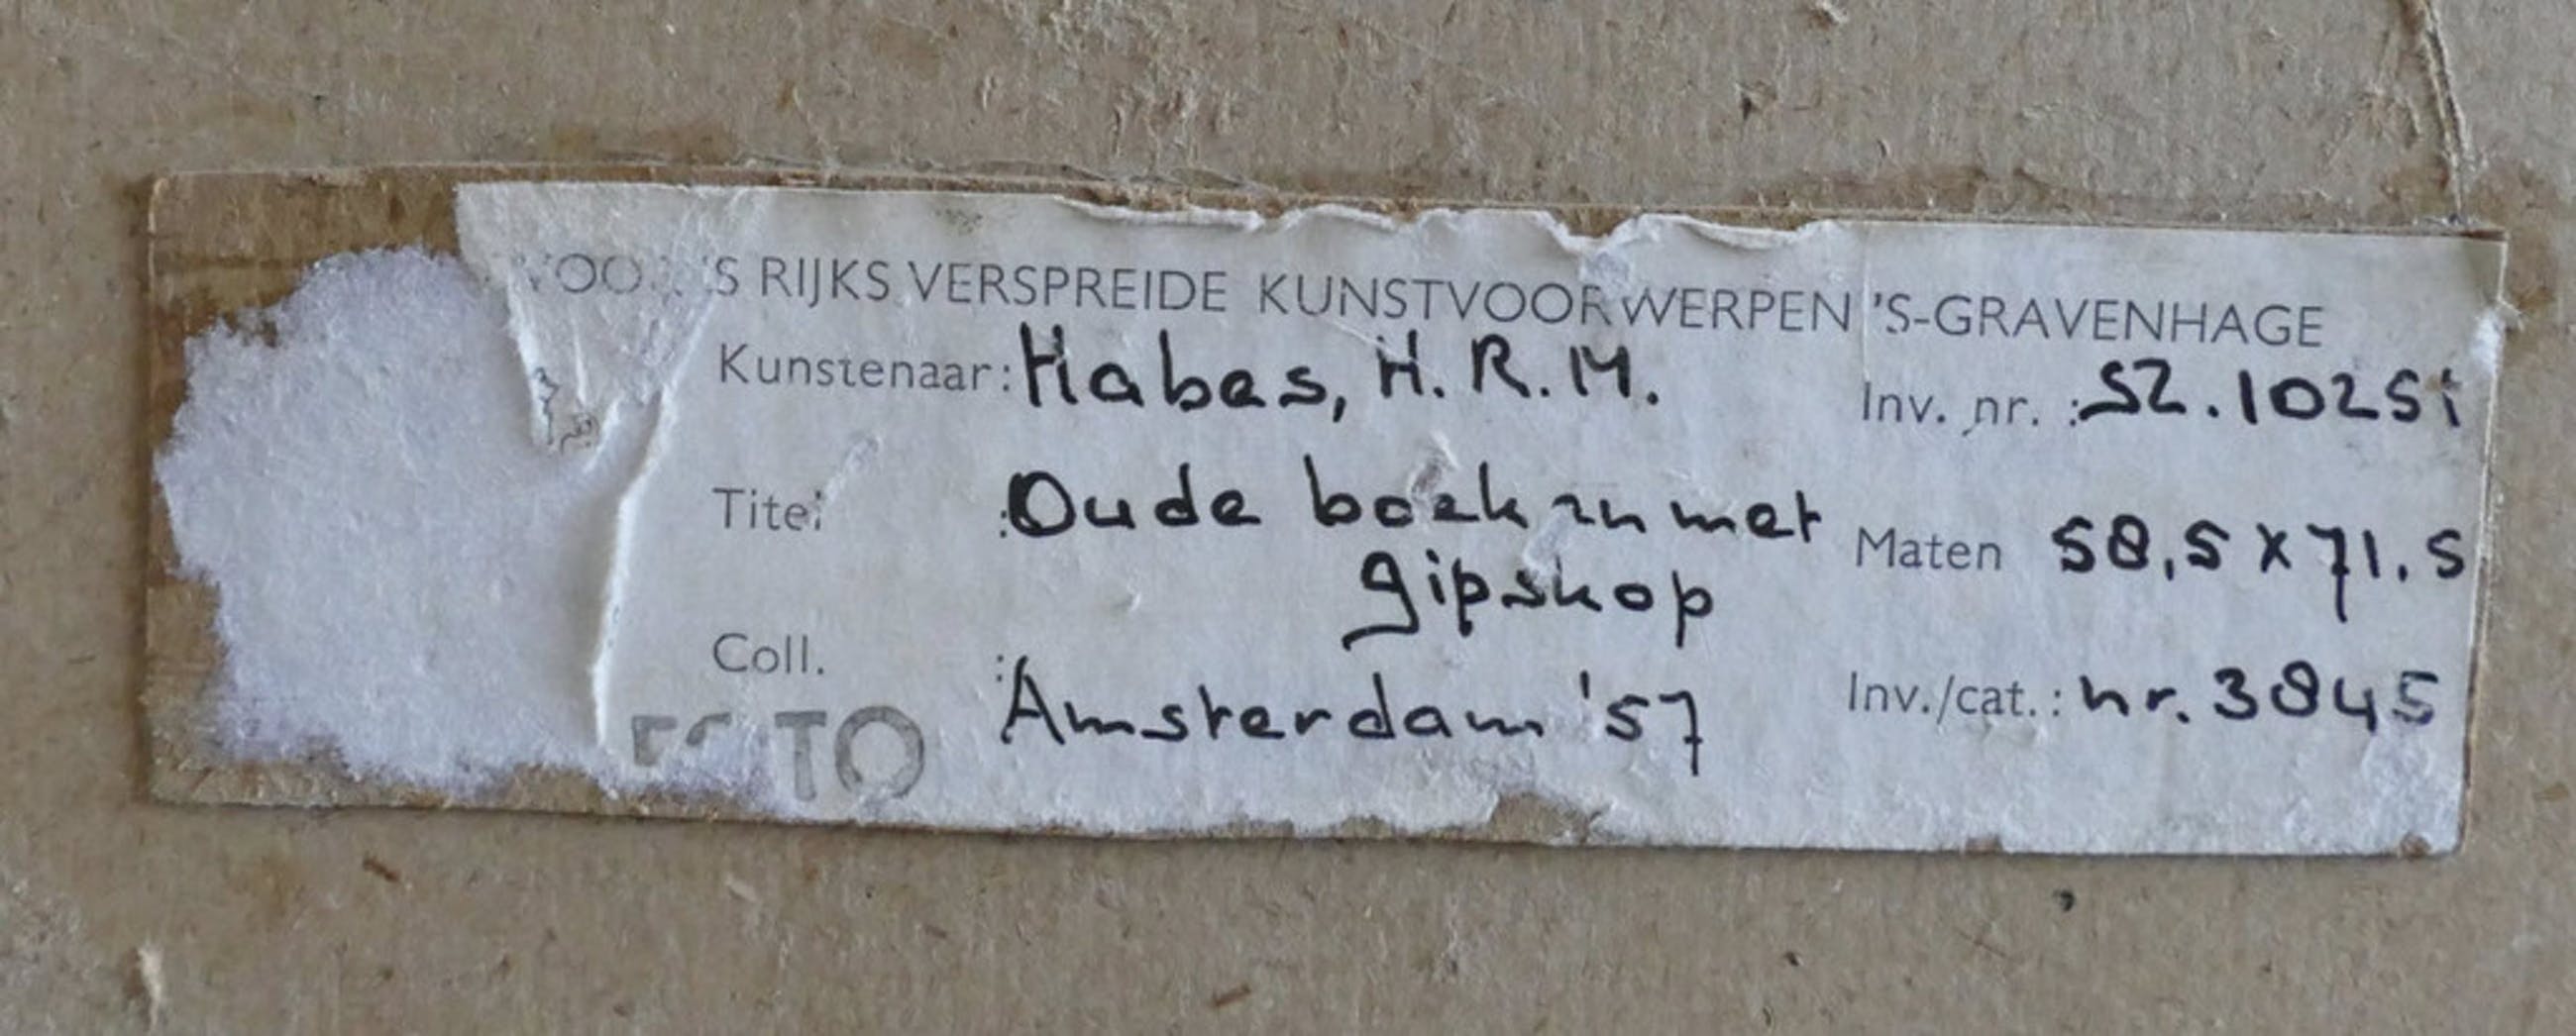 S RIJKS VERSPREIDE KUNSTVOORWERPEN 'S-GRAVENHAGE
Kunstenaar: Habes, H. R. M. Inv. nr. : SZ.10251
Titel : Oude boeken met Maten 58,5 x 71.5
gipskop
Coll. : Amsterdam '57 Inv./cat.: nr. 3845